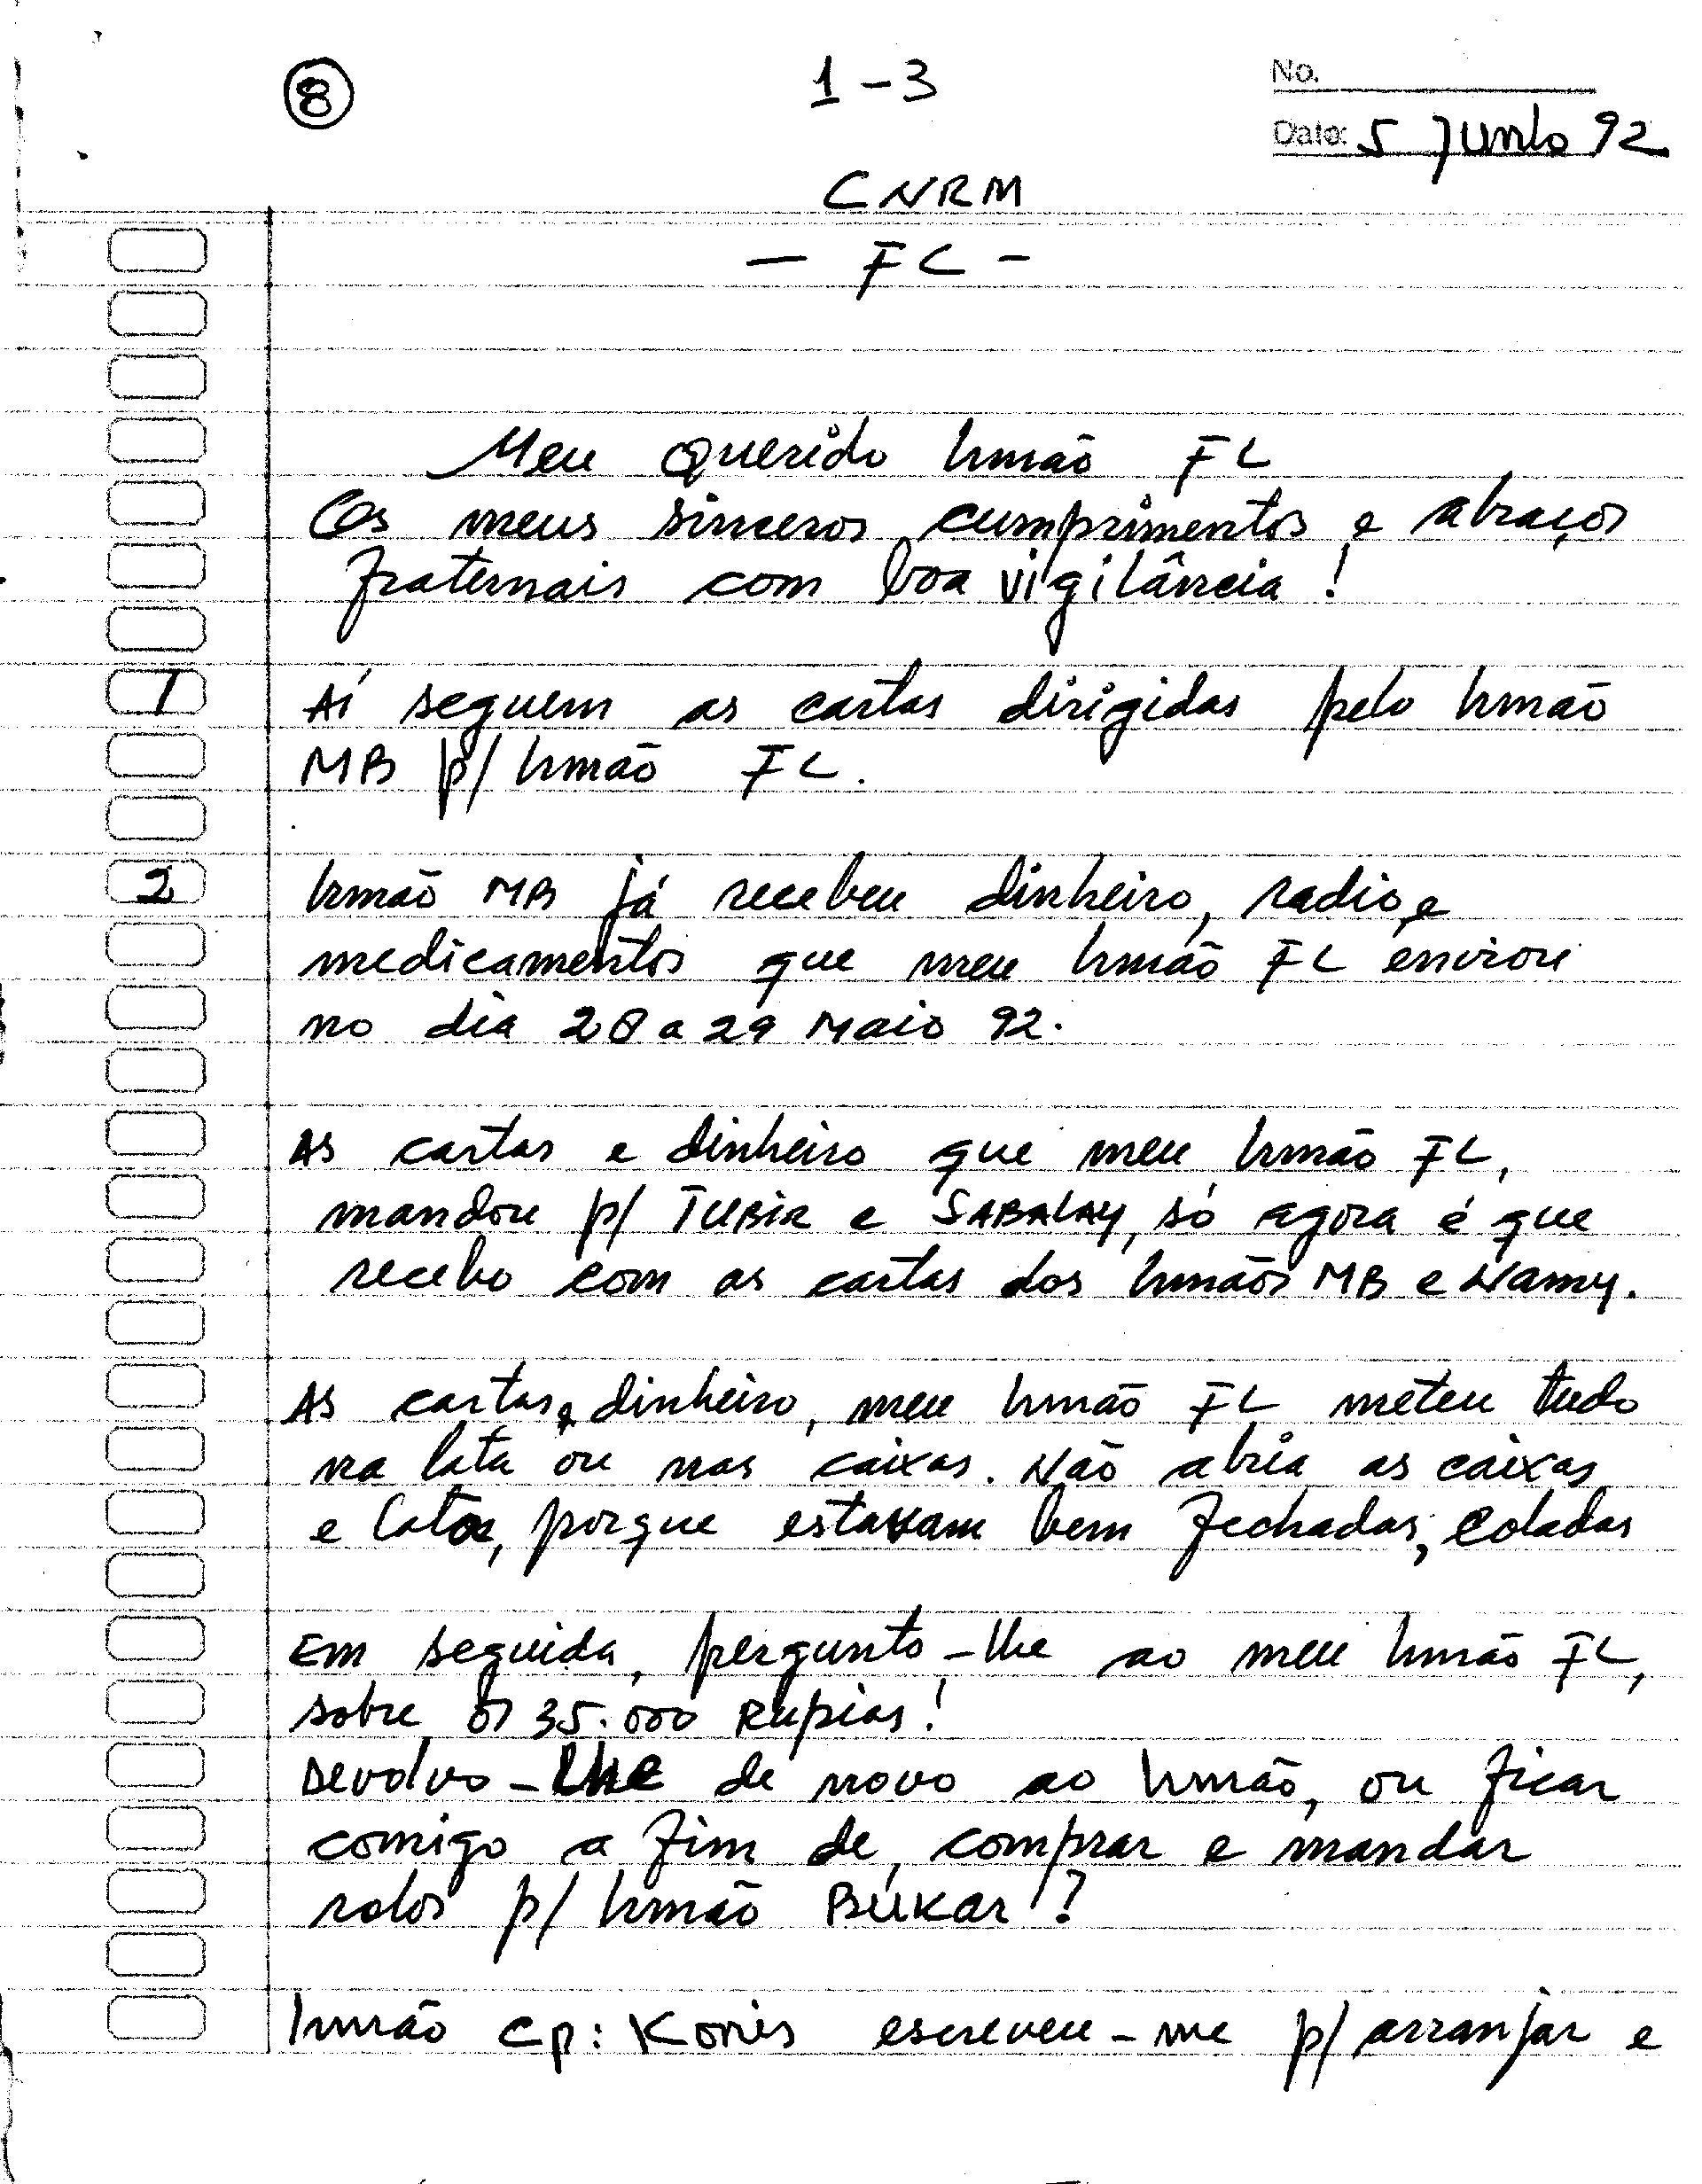 8
1-3
No.
Date: 5 Junho 92
CNRM
- FC -
Meu Querido Irmão FC
Os meus sinceros cumprimentos e abraços
fraternais com boa vigilância!
1 Aí seguem as cartas dirigidas pelo Irmão
MB p/ Irmão FC.
2 Irmão MB já recebeu dinheiro, radio e
medicamentos que meu Irmão FC enviou
no dia 28 a 29 Maio 92.
As cartas e dinheiro que meu Irmão FC,
mandou p/ TUBIR e SABALAY, só agora é que
recebo com as cartas dos Irmãos MB e Namy.
As cartas e dinheiro, meu Irmão FC meteu tudo
na lata ou nas caixas. Não abria as caixas
e latas, porque estavam bem fechadas, coladas
Em seguida, pergunto-lhe ao meu Irmão FC,
sobre os 35.000 Rupias!
Devolvo-lhe de novo ao Irmão, ou ficar
comigo a fim de, comprar e mandar
rolos p/ Irmão Búkar!?
Irmão Cp: Konis escreveu-me p/ arranjar e